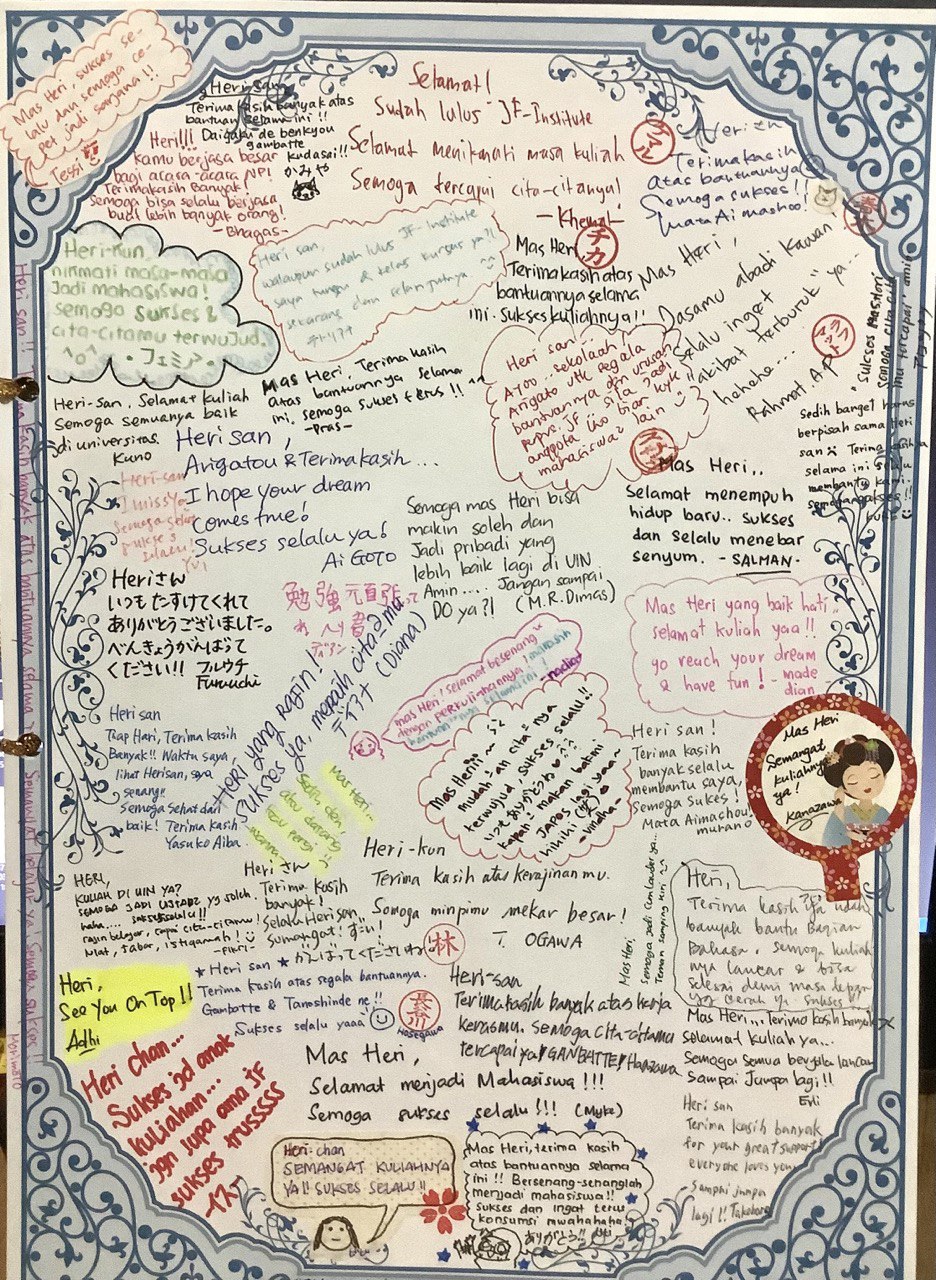 Mas Heri, sukses se-
lalu dan semoga ce-
pet jadi sarjana!!
Tessi
Heri san
Terima kasih banyak atas
bantuan selama ini!!
Daigaku de benkyou
gambatte
kudasai!!
かみや
Heri!!!
kamu berjasa besar
bagi acara-acara NP!
Terimakasih Banyak!
Semoga bisa selalu berjasa
buat lebih banyak orang!
-Bhagas-
Selamat!
Sudah lulus JF-Institute
Selamat menikmati masa kuliah
Semoga tercapai cita-citanya!
- Khewal -
Heri san
Terimakasih
atas bantuannya
Semoga sukses!!
Mata Aimashoo!
Heri-kun,
nikmati masa-masa
Jadi mahasiswa!
semoga sukses &
cita-citamu terwujud.
Heri san,
walaupun sudah lulus JF-Institute
saya tunggu di kelas kursus ya?!
sekarang dan selanjutnya
チカ
Mas Heri,
Terima kasih atas
bantuannya selama
ini. Sukses kuliahnya!!
Mas Heri,
Jasamu abadi kawan
Selalu inget
"akibat terburuk" ya...
hehehe....
Rahmat
"Sukses Mas Heri
Semoga cita-cita
mu tercapai" amii
Heri-san, Selamat kuliah
Semoga semuanya baik
di universitas
Kuno
Mas Heri, Terima kasih
atas bantuannya selama
ini, semoga sukses terus!! ^^
-Pras-
Heri san!
Ayoo.. sekolaah!
Arigato utk segala
bantuannya dan urusan
perps. JF
anggota
mahasiswa2 lain
Sedih banget harus
berpisah sama Heri
san Terima kasih ya
selama ini selalu
membantu kami.
Heri san,
Arigatou & Terimakasih...
I hope your dream
comes true!
Sukses selalu ya!
Ai GOTO
Heri-san
I miss You
Semoga selalu
sukses
selalu!
Yui
Semoga mas Heri bisa
makin soleh dan
Jadi pribadi yang
lebih baik lagi di UIN
Amin.... Jangan sampai
DO ya?! (M.R.Dimas)
Mas Heri,,
Selamat menempuh
hidup baru.. sukses
dan selalu menebar
senyum. -SALMAN-
Heriさん
いつもたすけてくれて
ありがとうございました。
べんきょうがんばって
ください!! フルウチ
Furuuchi
勉強頑張って
Heri yang rajin!
Sukses ya, meraih cita2mu
(Diana)
Mas Heri yang baik hati..
selamat kuliah yaa!!
go reach your dream
& have fun! - made
dian -
mas Heri! Selamat bersenang"
dengan perkuliahannya! makasih
bantuan"nya selama ini!
-nadia-
Heri san
Tiap Hari, Terima kasih
Banyak!! Waktu saya
lihat Heri san, saya
senang!!
Semoga sehat dan
baik! Terima kasih
Yasuko Aiba
Mas Heriii~
mudah"an cita"nya
terwujud, sukses selalu!!
kapan"! makan bakmi
JAPOS lagi yaa~
hihihi
-vidha-
Heri san!
Terima kasih
banyak selalu
membantu saya,
Semoga Sukses!
Mata Aimashou!
murano
Mas Heri
Semangat
kuliahnya
ya!
Kanazawa
HERI,
KULIAH DI UIN YA?
SEMOGA JADI USTADZ YG SOLEH.
haha.... sukses selalu!!
rajin belajar, capai cita-citamu!
Niat, Sabar, istiqamah!
-FIKRI-
Heri さん
Terima kasih
banyak!
Selalu Heri san
Sumangat! すごい!
がんばってくださいね♡
Heri-kun
Terima kasih atas kerajinanmu.
Somoga mimpimu mekar besar!
T. OGAWA
林
Mas Heri,
Semoga jadi cemlauder ya...
Teman samping kiri
Heri,
Terima kasih ya udah
banyak bantu Bagian
Bahasa, semoga kuliah
nya lancar & bisa
selesai demi masa depan
yg cerah ya. sukses
Heri,
See You On Top!!
Adhi
★ Heri san ★
Terima kasih atas segala bantuannya.
Gambatte & Tanoshinde ne!!
Sukses selalu yaaa
Hasegawa
Heri-san
Terimakasih banyak atas kerja
kerasmu. Semoga cita-citamu
tercapai ya! GANBATTE! Hanzawa
Mas Heri,,, Terima kasih banyak
selamat kuliah ya...
Semoga semua berjalan lancar
Sampai Jumpa lagi!!
Evli
Heri chan...
Sukses jd anak
kuliahan...
jgn lupa ama JF
sukses trusssss
Mas Heri,
Selamat menjadi Mahasiswa!!!
Semoga sukses selalu!!! (Myke)
Heri san
Terima kasih banyak
for your great support!
everyone loves you
- Sampai jumpa
lagi!! Takahara
Heri-chan
SEMANGAT KULIAHNYA
YA!! SUKSES SELALU!!
Mas Heri, terima kasih
atas bantuannya selama
ini!! Bersenang-senanglah
menjadi mahasiswa!!
sukses dan ingat terus
konsumsi mwahahaha!
ありがとう!!
Heri san!! Terima kasih banyak atas bantuannya selama
Semangat belajar ya Semoga sukses!!
Morimoto